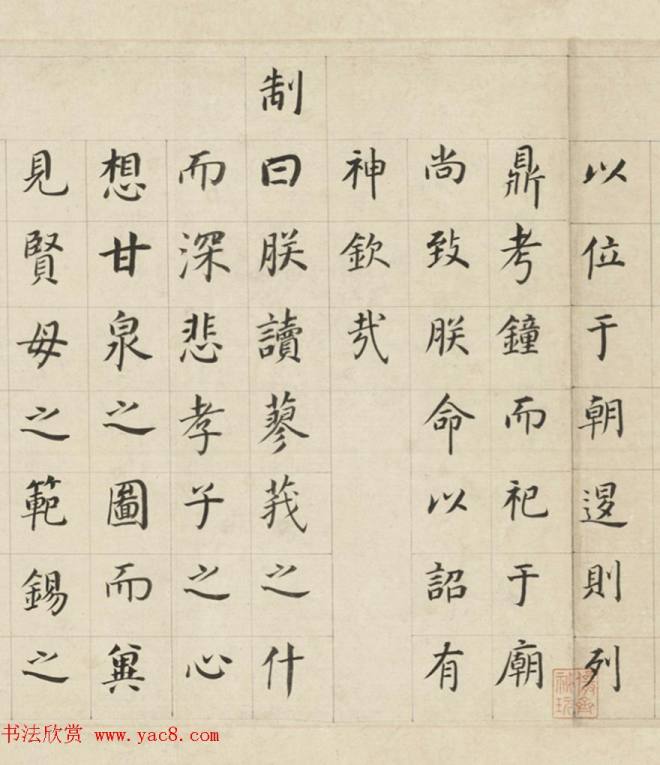 以位于朝退則列
鼎考鐘而祀于廟
尚致朕命以詔有
神欽哉
制曰朕讀蓼莪之什
而深悲孝子之心
想甘泉之圖而冀
見賢母之範錫之
书法欣赏 www.yac8.com